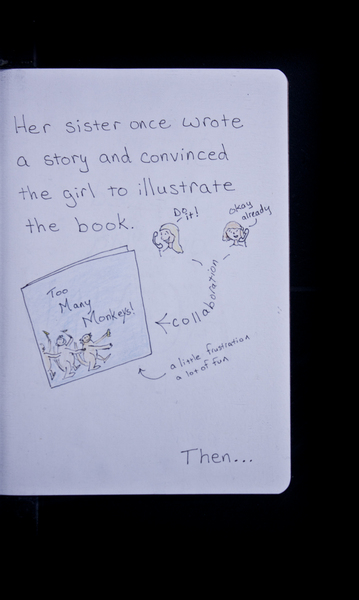 Her sister once wrote
a story and convinced
the girl to illustrate
the book.
Do it!
okay already
Too
Many
Monkeys!
collaboration
a little frustration
a lot of fun
Then...